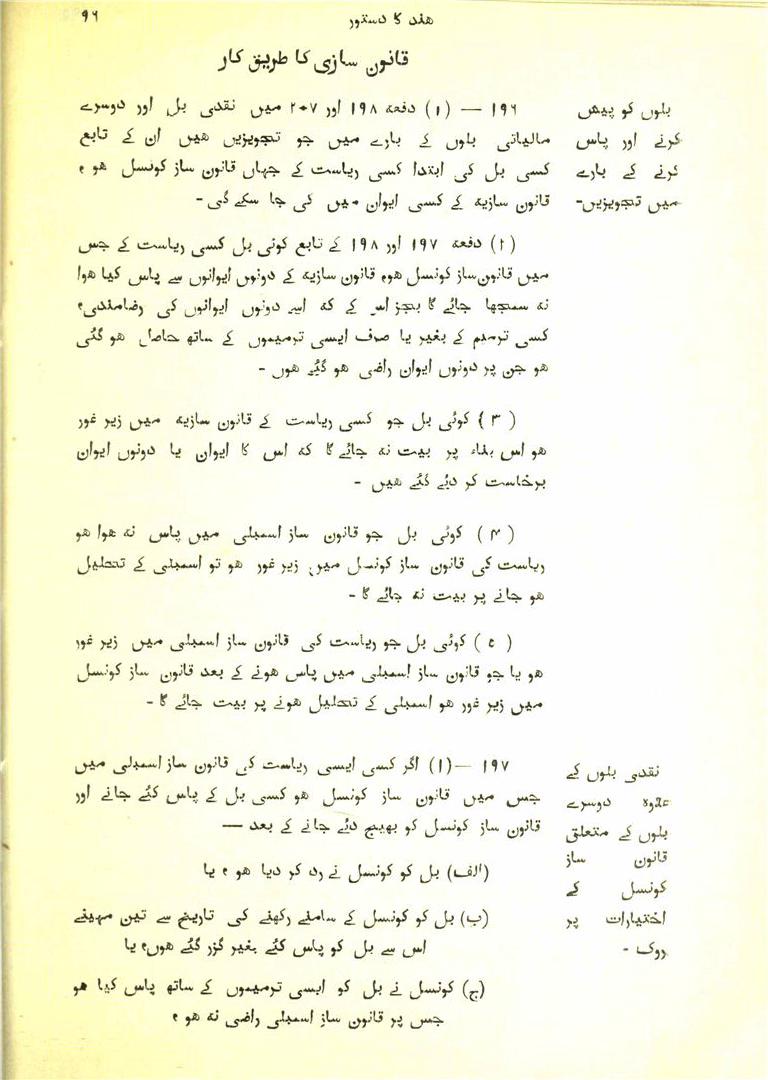 ھند کا دستور
۹۶
قانون سازی کا طریق کار
بلوں کو پیش
کرنے اور پاس
کرنے کے بارے
میں تجویزیں-
۱۹۶ — (۱) دفعہ ۱۹۸ اور ۲۰۷ میں نقدی بل اور دوسرے
مالیاتی بلوں کے بارے میں جو تجویزیں ھیں ان کے تابع
کسی بل کی ابتدا کسی ریاست کے جہاں قانون ساز کونسل ھو ،
قانون سازیہ کے کسی ایوان میں کی جا سکے گی -
(۲) دفعہ ۱۹۷ اور ۱۹۸ کے تابع کوئی بل کسی ریاست کے جس
میں قانون ساز کونسل ھو، قانون سازیہ کے دونوں ایوانوں سے پاس کیا ھوا
نہ سمجھا جائے گا بجز اس کے کہ اسے دونوں ایوانوں کی رضامندی،
کسی ترمیم کے بغیر یا صرف ایسی ترمیموں کے ساتھ حاصل ھو گئی
ھو جن پر دونوں ایوان راضی ھو گئے ھوں -
(۳) کوئی بل جو کسی ریاست کے قانون سازیہ میں زیر غور
ھو اس بناء پر بیت نہ جائے گا کہ اس کا ایوان یا دونوں ایوان
برخاست کر دئے گئے ھیں -
(۴) کوئی بل جو قانون ساز اسمبلی میں پاس نہ ھوا ھو
ریاست کی قانون ساز کونسل میں زیر غور ھو تو اسمبلی کے تحلیل
ھو جانے پر بیت نہ جائے گا -
(۵) کوئی بل جو ریاست کی قانون ساز اسمبلی میں زیر غور
ھو یا جو قانون ساز اسمبلی میں پاس ھونے کے بعد قانون ساز کونسل
میں زیر غور ھو اسمبلی کے تحلیل ھونے پر بیت جائے گا -
نقدی بلوں کے
علاوہ دوسرے
بلوں کے متعلق
قانون ساز
کونسل کے
اختیارات پر
روک -
۱۹۷ —(۱) اگر کسی ایسی ریاست کی قانون ساز اسمبلی میں
جس میں قانون ساز کونسل ھو کسی بل کے پاس کئے جانے اور
قانون ساز کونسل کو بھیج دئے جانے کے بعد —
(الف) بل کو کونسل نے رد کر دیا ھو ، یا
(ب) بل کو کونسل کے سامنے رکھنے کی تاریخ سے تین مہینے
اس سے بل کو پاس کئے بغیر گزر گئے ھوں، یا
(ج) کونسل نے بل کو ایسی ترمیموں کے ساتھ پاس کیا ھو
جس پر قانون ساز اسمبلی راضی نہ ھو ،